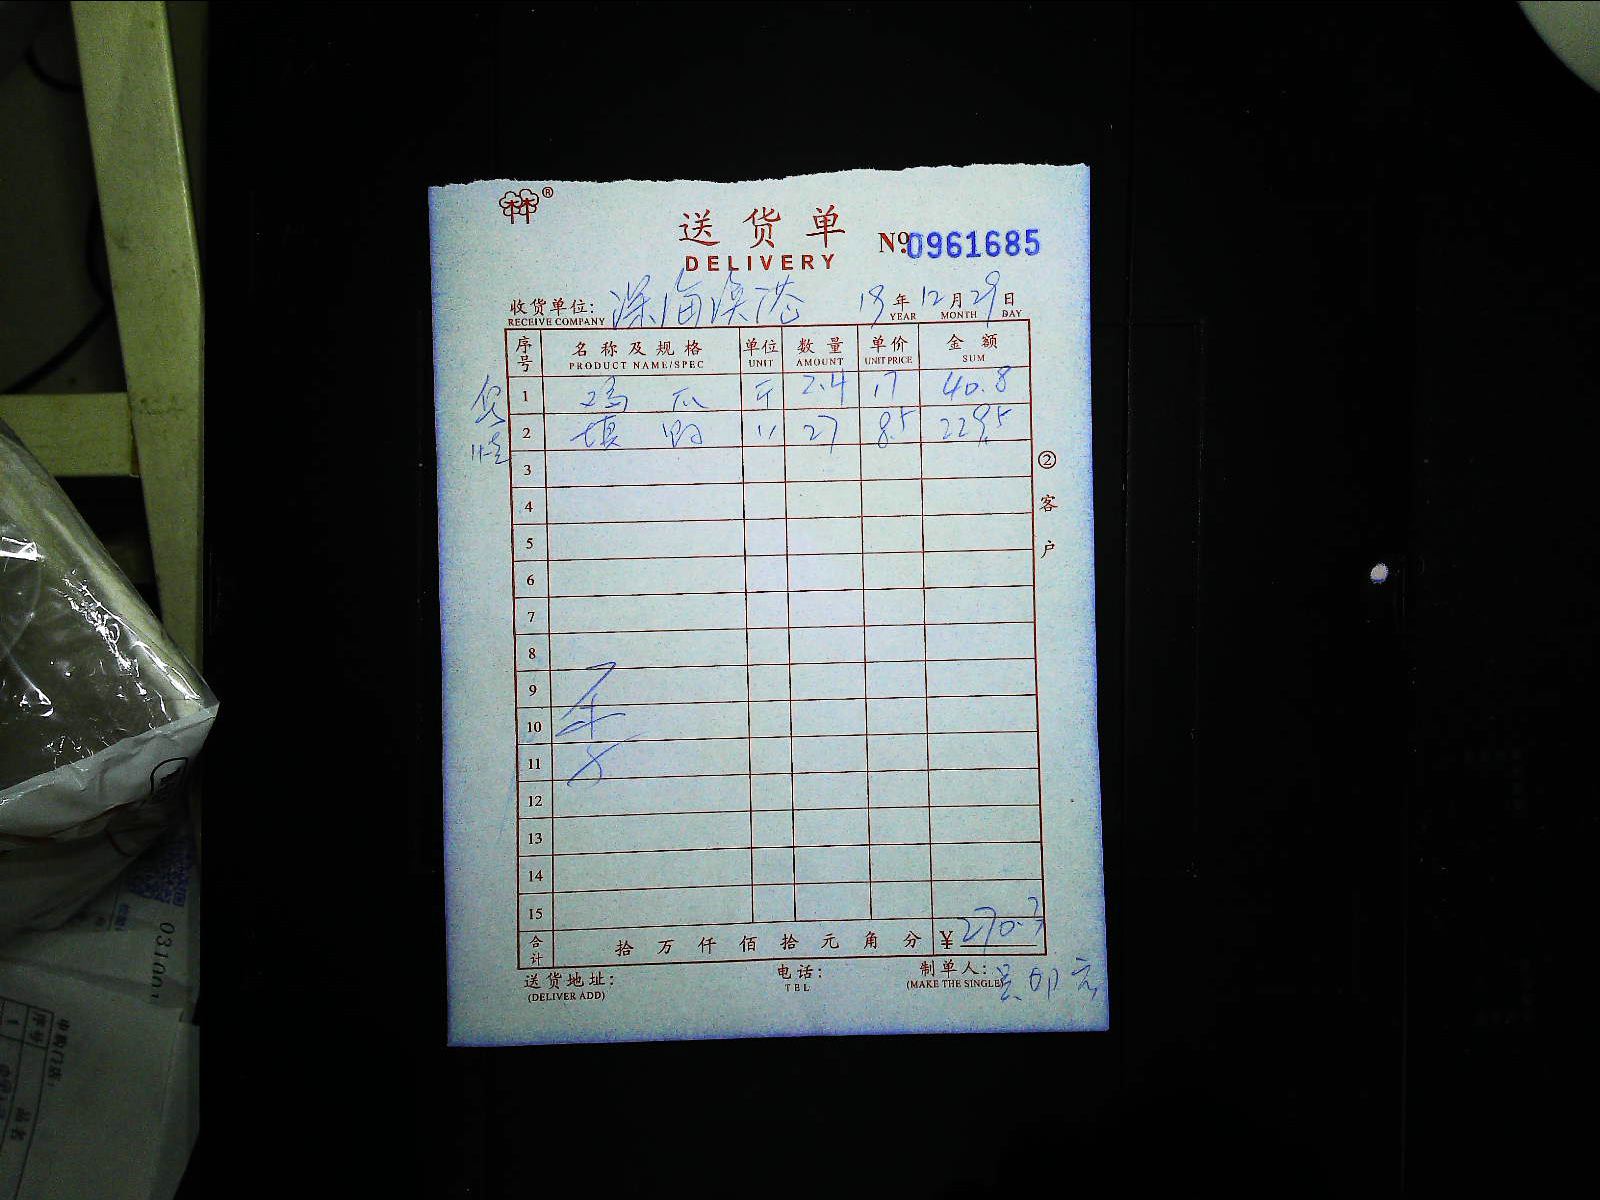 林®
送货单
№0961685
DELIVERY
收货单位: 深海渔港 19年12月29日
RECEIVE COMPANY YEAR MONTH DAY
序号 名称及规格 单位 数量 单价 金额
PRODUCT NAME/SPEC UNIT AMOUNT UNIT PRICE SUM
1 鸡爪 斤 2.4 17 40.8
2 填鸭 〃 27 8.5 229.5
3
4
5
6
7
8
9
10
11
12
13
14
15
合计 拾万仟佰拾元角分 ¥270.3
② 客户
送货地址: 电话: 制单人:
(DELIVER ADD) TEL (MAKE THE SINGLE)
031001
申购门店:
序号 品名
1